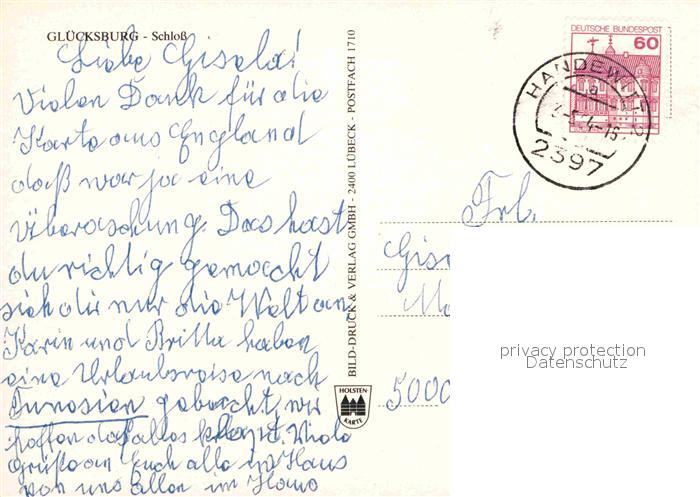 GLÜCKSBURG - Schloß
Liebe Gisela!
Vielen Dank für die
Karte aus England
daß war ja eine
Überaschung. Das hast
du richtig gemacht
sieh dir nur die Welt an,
Karin und Britta haben
eine Urlaubsreise nach
Tunesien gebucht, wir
hoffen daß alles klappt. Viele
Grüße an Euch alle im Haus
von uns allen im Haus
BILD-DRUCK & VERLAG GMBH - 2400 LÜBECK - POSTFACH 1710
HOLSTEN-
KARTE
DEUTSCHE BUNDESPOST
60
HANDEWITT 2
a
2397
Frl.
5000
privacy protection
Datenschutz